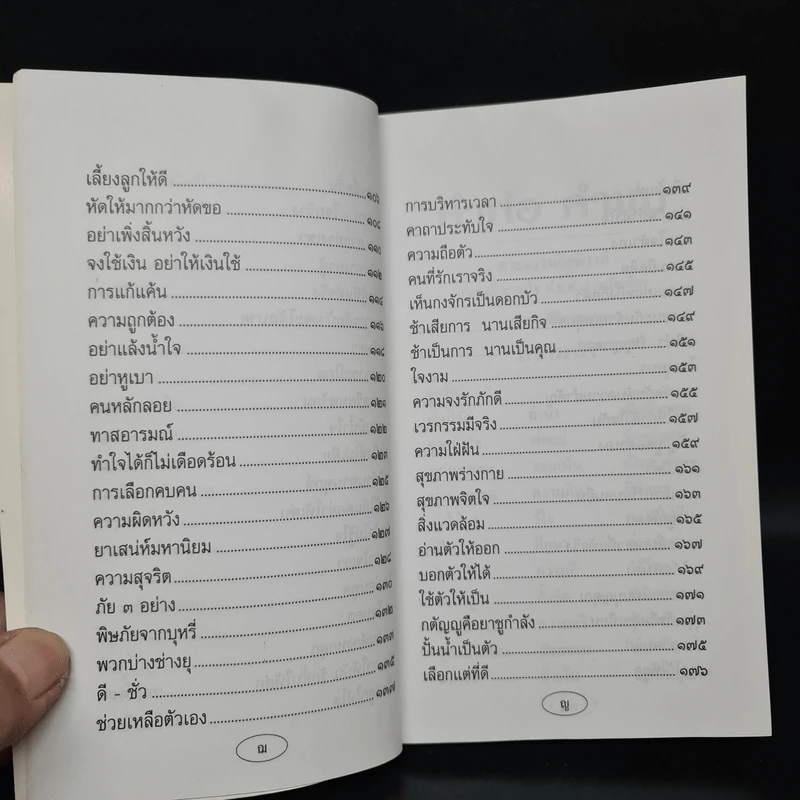 เลี้ยงลูกให้ดี ๑๐๖
หัดให้มากกว่าหัดขอ ๑๐๘
อย่าเพิ่งสิ้นหวัง ๑๑๐
จงใช้เงิน อย่าให้เงินใช้ ๑๑๒
การแก้แค้น ๑๑๔
ความถูกต้อง ๑๑๖
อย่าแล้งน้ำใจ ๑๑๘
อย่าหูเบา ๑๒๐
คนหลักลอย ๑๒๑
ทาสอารมณ์ ๑๒๒
ทำใจได้ก็ไม่เดือดร้อน ๑๒๓
การเลือกคบคน ๑๒๕
ความผิดหวัง ๑๒๖
ยาเสน่ห์มหานิยม ๑๒๗
ความสุจริต ๑๒๘
ภัย ๓ อย่าง ๑๓๐
พิษภัยจากบุหรี่ ๑๓๒
พวกบ่างช่างยุ ๑๓๓
ดี - ชั่ว ๑๓๕
ช่วยเหลือตัวเอง ๑๓๗
ฌ
การบริหารเวลา ๑๓๙
คาถาประทับใจ ๑๔๑
ความถือตัว ๑๔๓
คนที่รักเราจริง ๑๔๕
เห็นกงจักรเป็นดอกบัว ๑๔๗
ช้าเสียการ นานเสียกิจ ๑๔๙
ช้าเป็นการ นานเป็นคุณ ๑๕๑
ใจงาม ๑๕๓
ความจงรักภักดี ๑๕๕
เวรกรรมมีจริง ๑๕๗
ความใฝ่ฝัน ๑๕๙
สุขภาพร่างกาย ๑๖๑
สุขภาพจิตใจ ๑๖๓
สิ่งแวดล้อม ๑๖๕
อ่านตัวให้ออก ๑๖๗
บอกตัวให้ได้ ๑๖๙
ใช้ตัวให้เป็น ๑๗๑
กตัญญูคือยาชูกำลัง ๑๗๓
ปั้นน้ำเป็นตัว ๑๗๕
เลือกแต่ที่ดี ๑๗๖
ญ